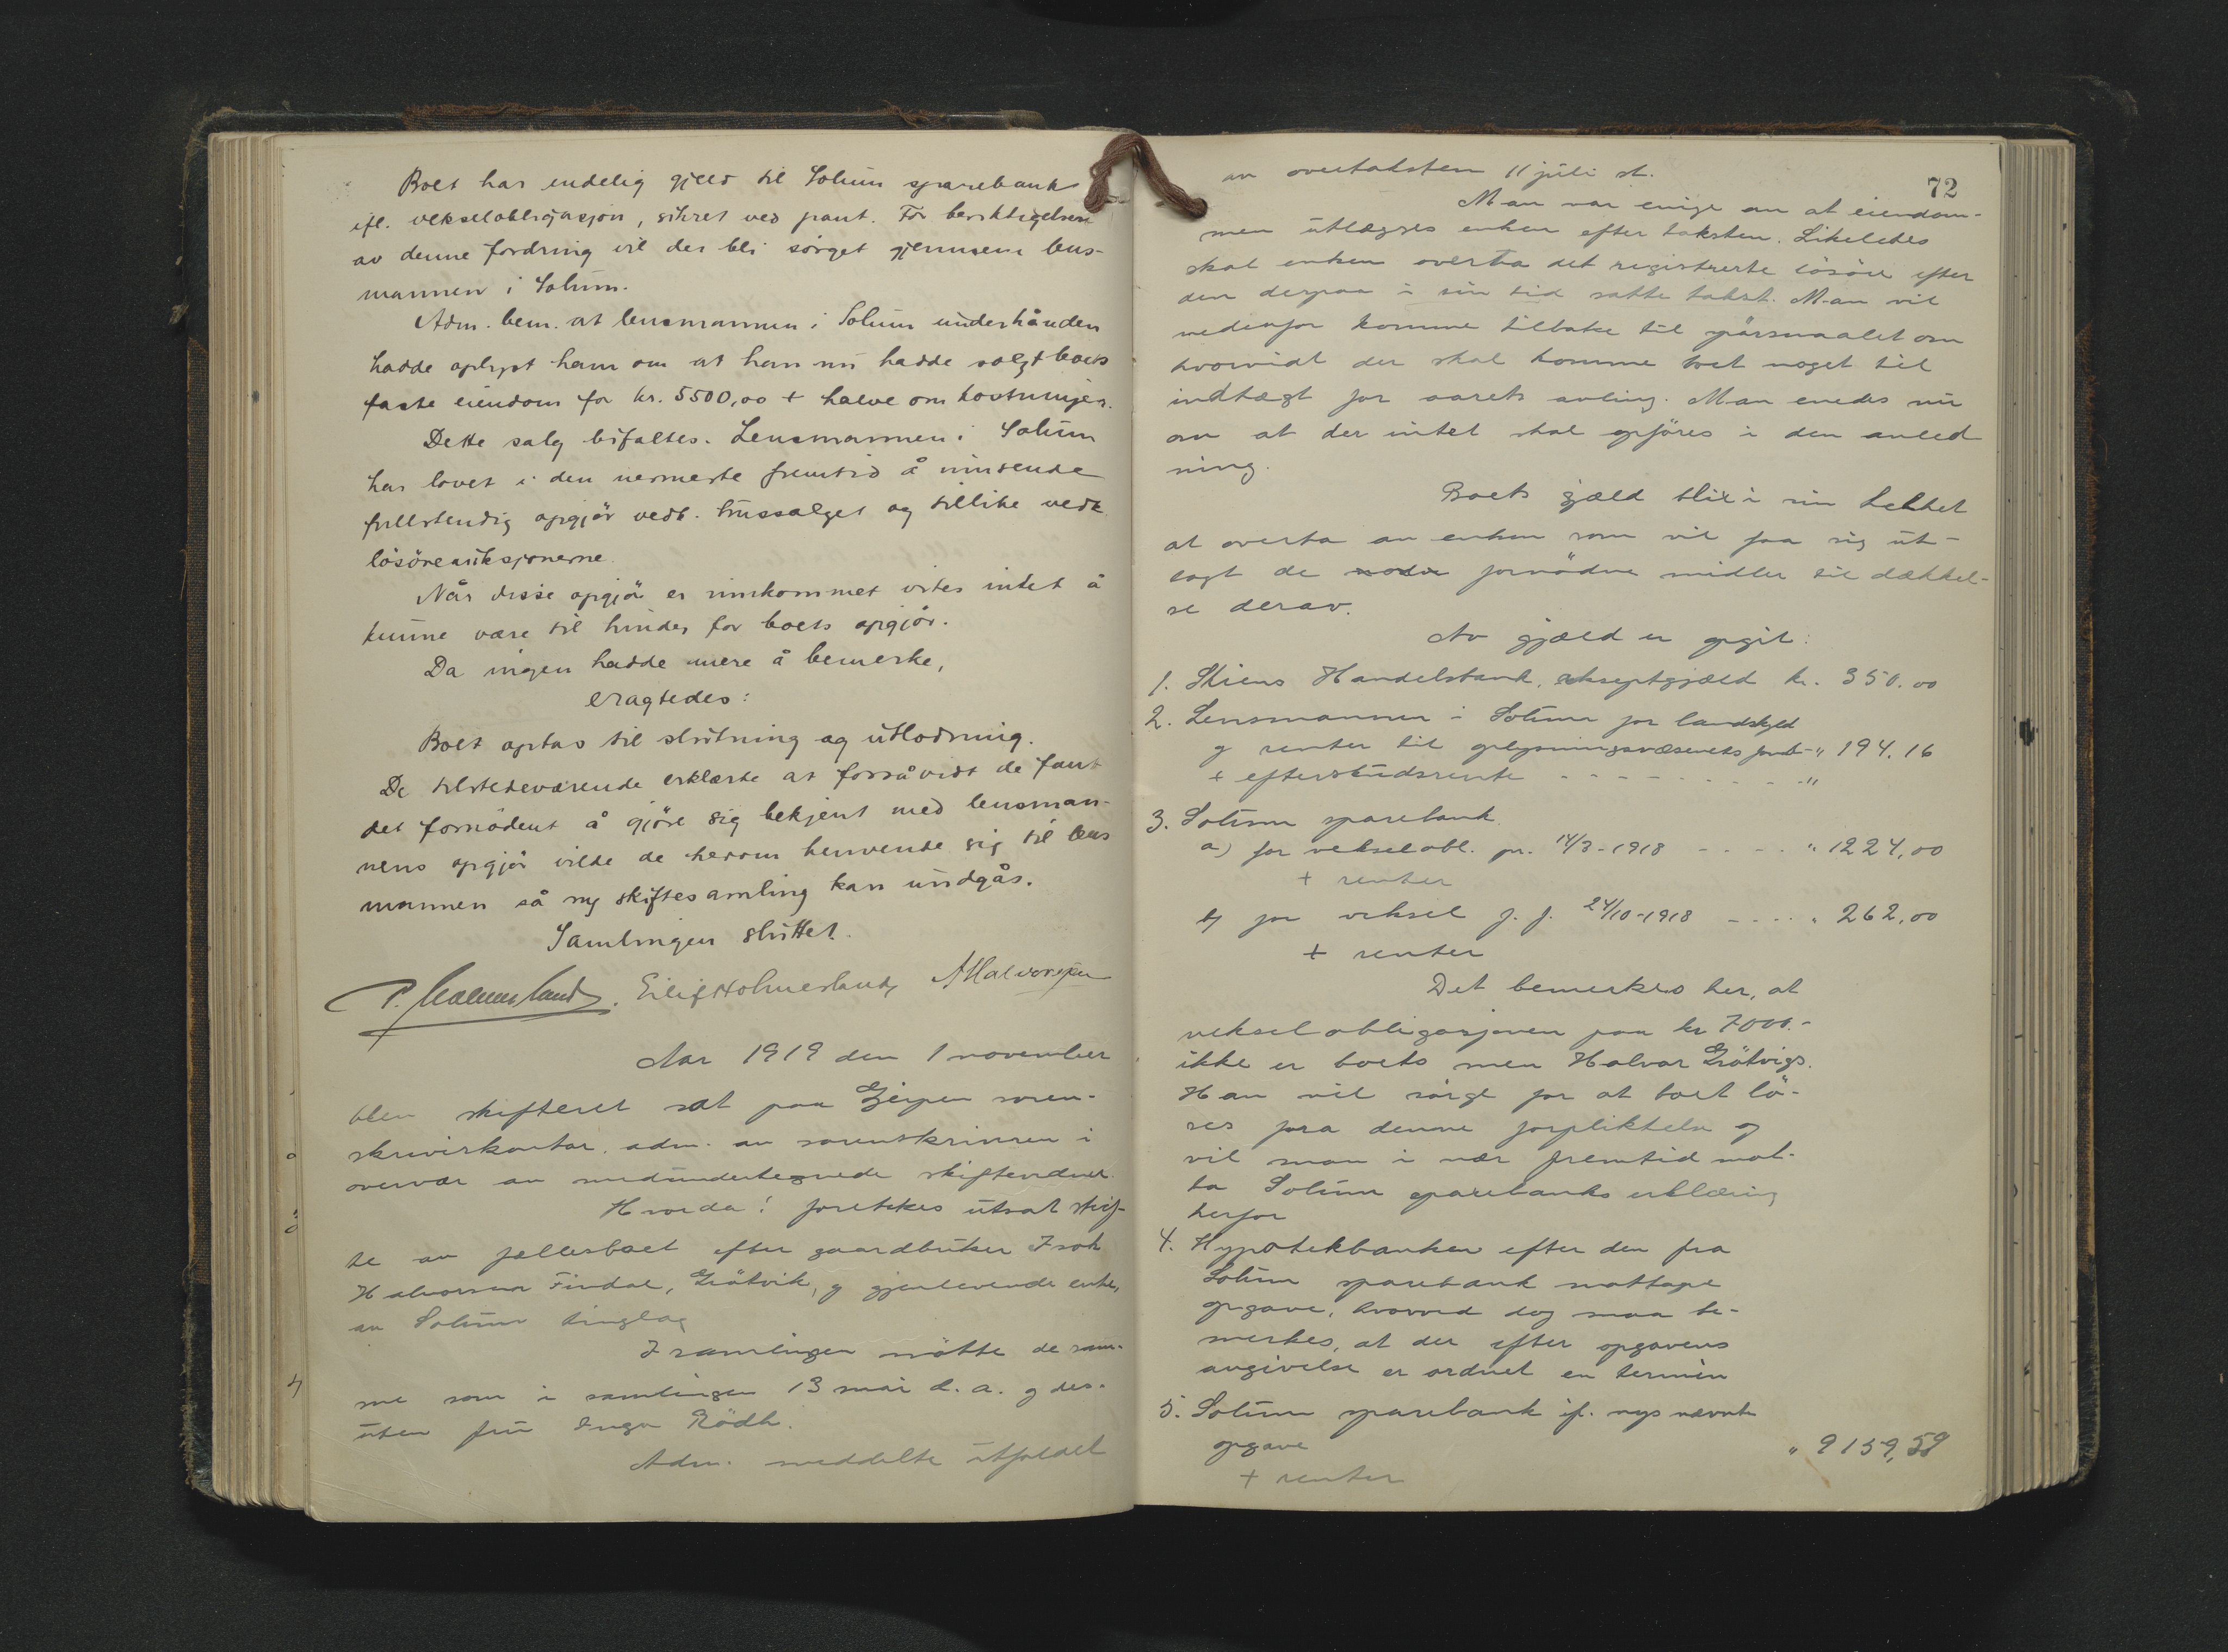 Boet har endelig gjeld til Solum sparebank
ifl. vekselobligasjon, sikret ved pant. For beriktigelsen
av denne fordring vil der bli sörget gjennem lens-
mannen i Solum.
Adm. bem. at lensmannen i Solum underhånden
hadde oplyst ham om at han nu hadde solgt boets
faste eiendom for kr. 5500,00 + halve omkostninger.
Dette salg bifaltes. Lensmannen i Solum
har lovet i den nermeste fremtid å innsende
fullstendig opgjör vedk. hussalget og tillike vedk
lösöreauksjonerne.
Når disse opgjör er innkommet vites intet å
kunne være til hinder for boets opgjör.
Da ingen hadde mere å bemerke,
eragtedes:
Boet optas til slutning og utlodning.
De tilstedeværende erklærte at forsåvidt de fant
det fornödent å gjöre sig bekjent med lensman-
nens opgjör vilde de herom henvende sig til lens
mannen så ny skiftesamling kan undgås.
Samlingen sluttet.
P. Holmesland. Eilif Holmesland, A Halvorsen
Aar 1919 den 1 november
blev skifteret sat paa Gjerpen soren-
skriverkontor, adm. av sorenskriveren i
overvær av medundertegnede skiftevidner.
Hvorda: foretokes utsat skif-
te av fællesboet efter gaardbruker Isak
Halvorsen Findal, Grötvik, og gjenlevende enke,
av Solum tinglag
I samlingen mötte de sam-
me som i samlingen 13 mai d. a. og des-
uten fru Inga Rödh.
Adm. meddelte utfaldet
72
av overtaksten 11 juli st.
Man var enige om at eiendom-
men utlægges enken efter taksten. Likeledes
skal enken overta det registrerte lösöre efter
den derpaa i sin tid satte takst. Man vil
nedenfor komme tilbake til spörsmaalet om
hvorvidt der skal komme boet noget til
indtægt for aarets avling. Man enedes nu
om at der intet skal opföres i den anled
ning.
Boets gjæld blir i sin helhet
at overta av enken som vil faa sig ut-
lagt de fornödne midler til dækkel-
se derav.
Av gjæld er opgit:
1. Skiens Handelsbank, akseptgjæld kr. 350.00
2. Lensmannen i Solum for landskyld
og renter til oplysningsvæsenets fond - " 194.16
+ efterskudsrente - - - - - - - - - "
3. Solum sparebank
a) for vekselobl. pr. 14/3-1918 - - - - " 1224,00
+ renter
b) for veksel f. f. 24/10-1918 - - - - " 262,00
+ renter
Det bemerkes her, at
vekselobligasjonen paa kr 7000.-
ikke er boets men Halvor Grötvigs.
Han vil sörge for at boet lö-
ses fra denne forpliktelse og
vil man i nær fremtid mot-
ta Solum sparebanks erklæring
herfor
4. Hypotekbanken efter den fra
Solum sparebank mottagne
opgave, hvorved dog maa be-
merkes, at der efter opgavens
angivelse er ordnet en termin
5. Solum sparebank if. nys nævnte
opgave " 9159,59
+ renter